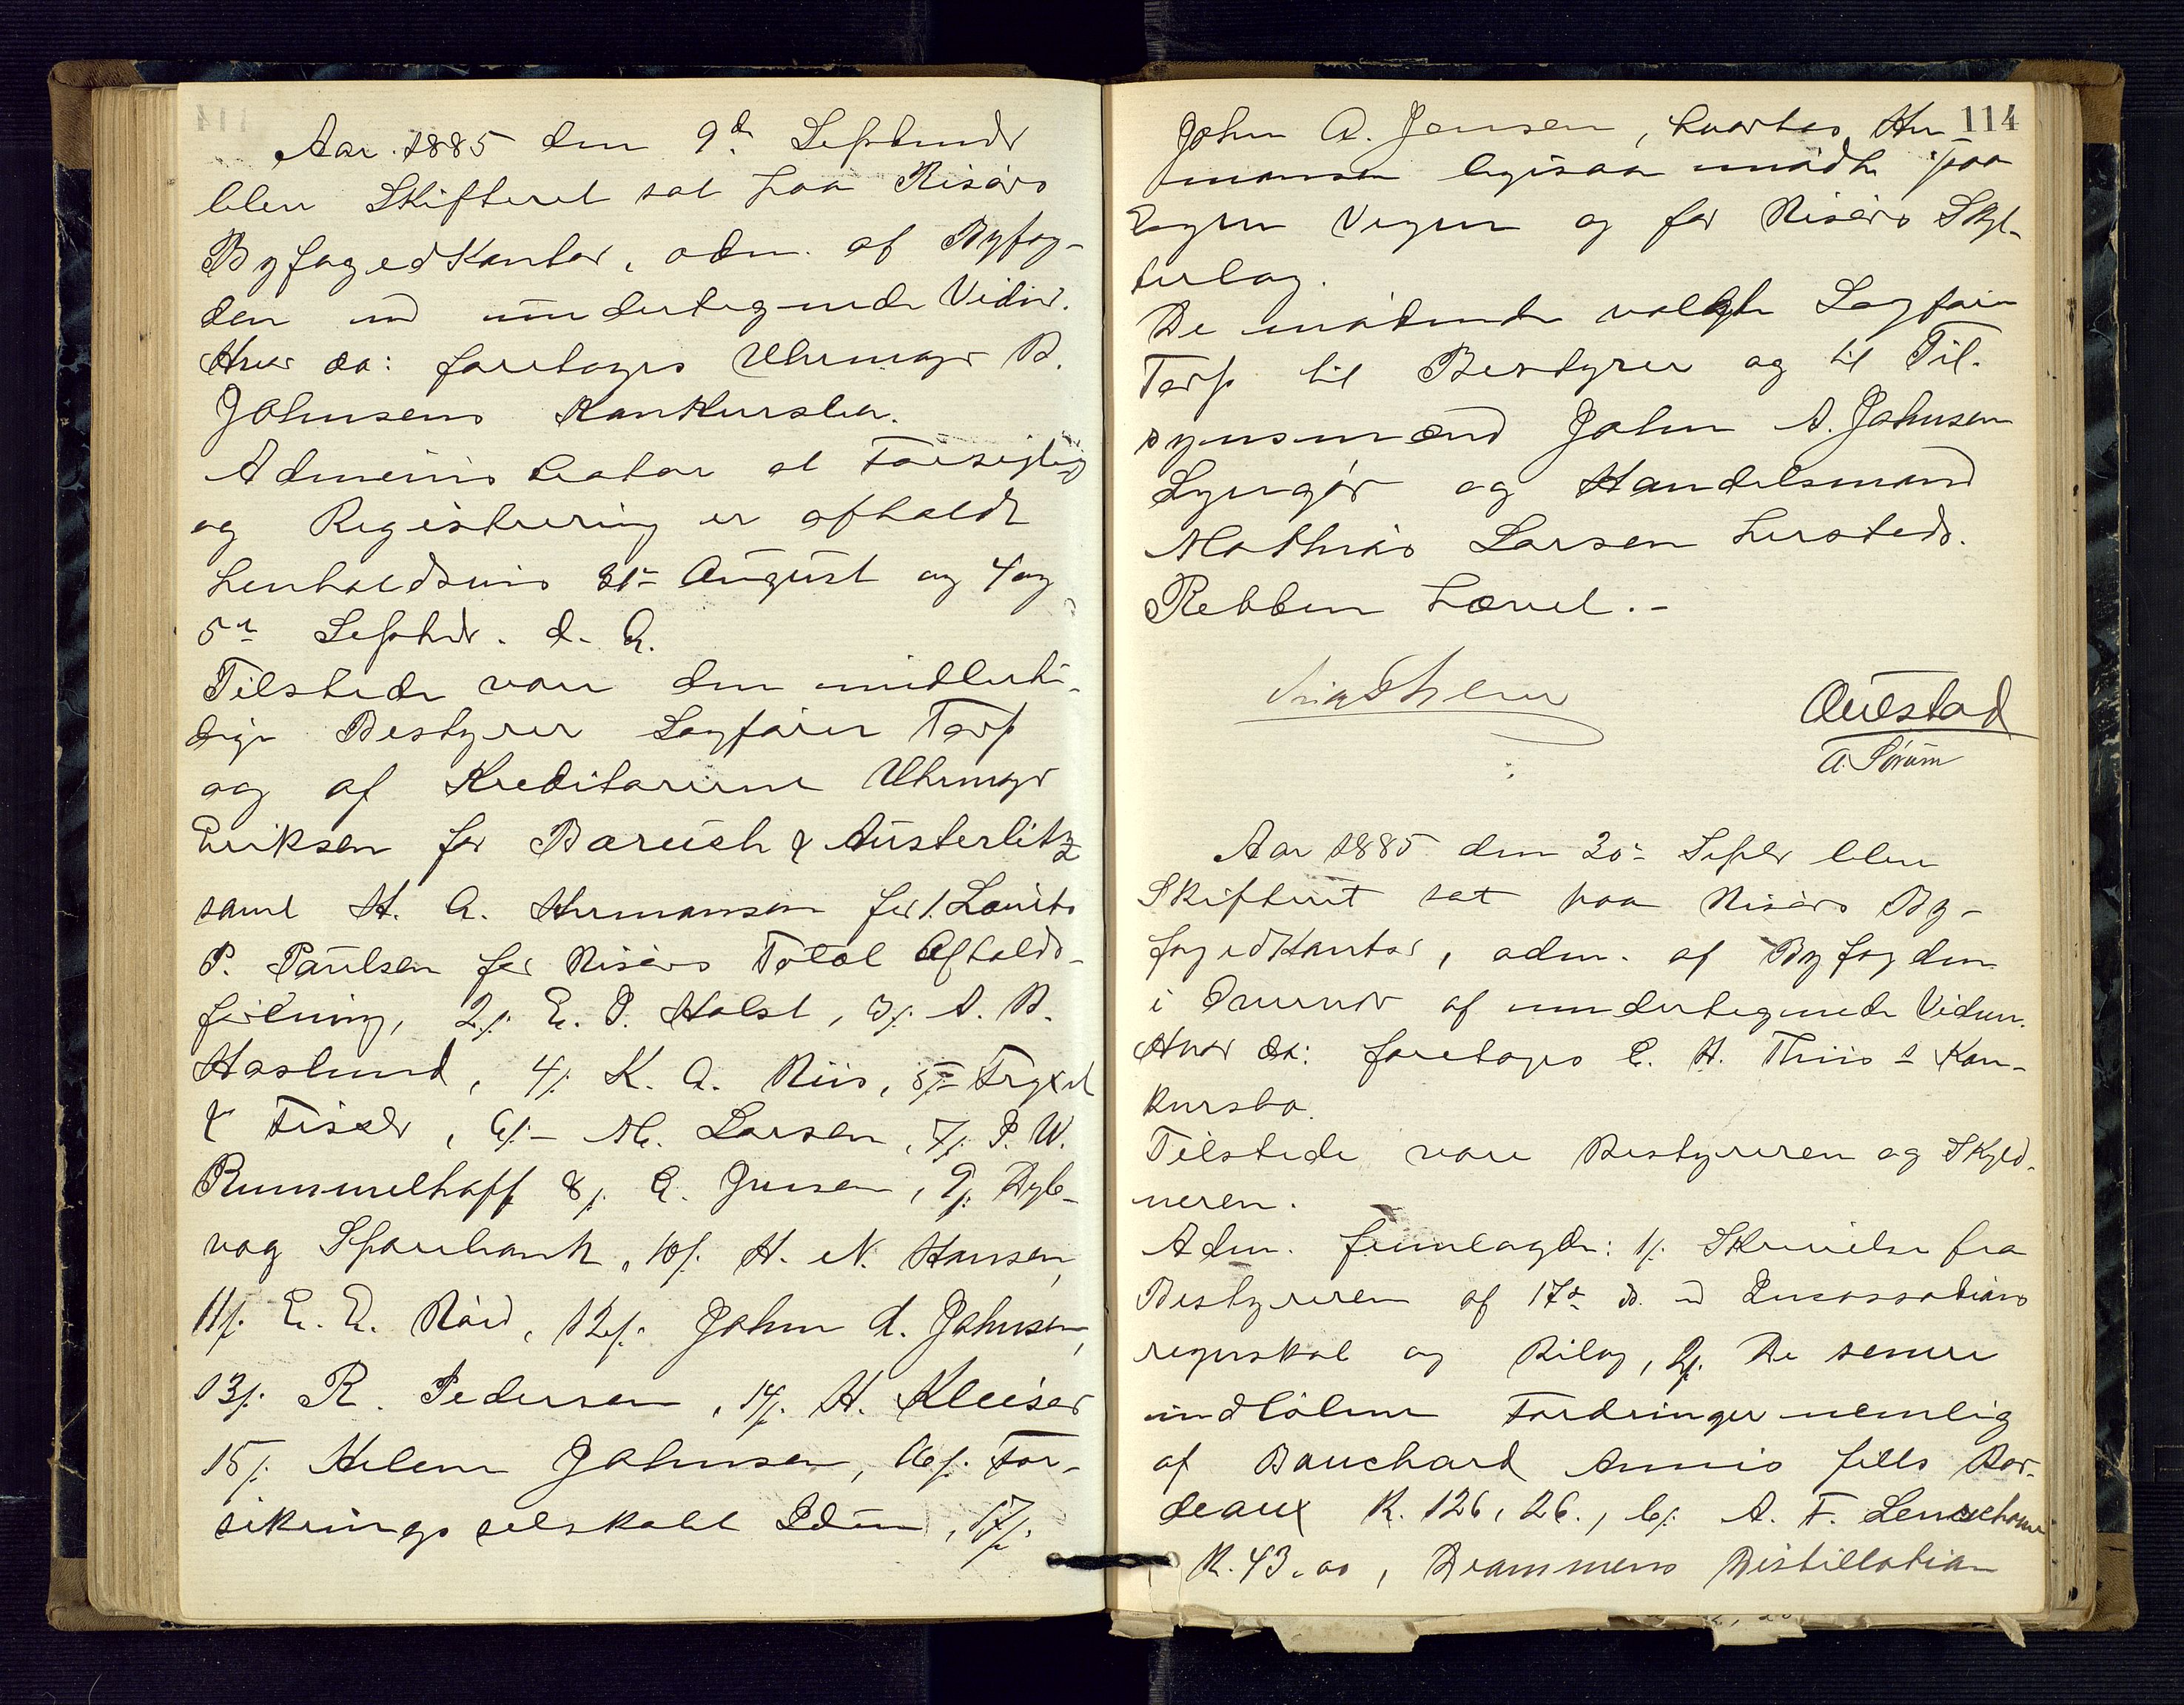 Aar 1885 den 9d Septembr
blev Skifteret sat paa Risørs
Byfogedkontor, adm. af Byfog-
den m undertegnede Vidnr.
Hvor da: foretoges Uhrmagr B.
Johnsens Konkursbo.
Administrator at Forsegling
og Registrering er afholdt
henholdsvis 31te August og 4 og
5te Septbr. d. A.
Tilstede vare den midlerti-
dige Bestyrer Sagfører Torp
og af Kreditorerne Uhrmagr
Eriksen for Baruch & Austerlitz
samt H. A. Hermansen for 1. Louits
P. Paulsen for Risørs Total Afholds-
forening, 2/. E. P. Holst, 3/. A. B.
Haslund, 4/. K. A. Riis, 5/. Fryxel
& Fisdr, 6/. M. Larsen, 7/. P. W.
Rummelhoff 8/. E. Jensen, 9/. Dyb-
vag Sparebank, 10/. H. N. Hansen,
11/. E. E. Röed, 12/. John A. Johnsen,
13/. R. Pedersen, 14/. H. Kleiser
15/. Helene Johnsen, 16/. For-
sikringsselskabet Idun, 17/.
114
John A. Jensen, hvorhos Her-
mansen ligesaa mødte paa
Egne Vegne og for Risørs Skyt-
terlag.
De mødende valgte Sagfører
Torp til Bestyrer og til Til-
synsmænd John A. Johnsen
Lyngør og Handelsmand
Mathias Larsen hersteds.
Retten hævet.-
Auestad
A. Sørum
Aar 1885 den 30te Septbr blev
Skifteret sat paa Risørs By-
fogedkontor, adm. af Byfogden
i Overvær af undertegnede Vidner.
Hvor da: foretoges C. H. Thiis's Kon-
kursbo.
Tilstede vare Bestyreren og Skyld-
neren.
Adm. fremlagde: 1/. Skrivelse fra
Bestyreren af 17de ds. m Incassations
regnskab og Bilag, 2/. De senere
indløbne Fordringer nemlig
af Bouchard Annis fills Bor-
deaux K. 126,26., b/. A. F.
K. 43.00, Drammens Distillation